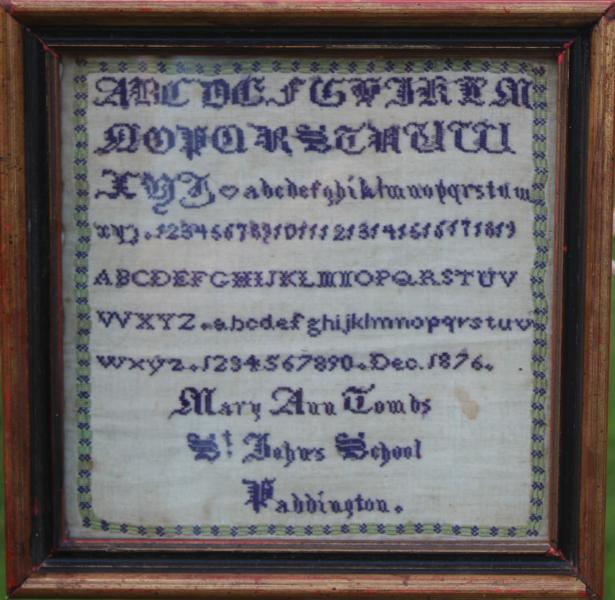 ABCDEFGHIKLM
NOPQRSTUVW
XYZ♡abcdefghiklmnopqrstuw
xyz.12345678910111213141516171819
ABCDEFGHIJKLMNOPQRSTUV
WXYZ.abcdefghijklmnopqrstuv
wxyz.1234567890.Dec.1876.
Mary Ann Tombs
St Johns School
Paddington.